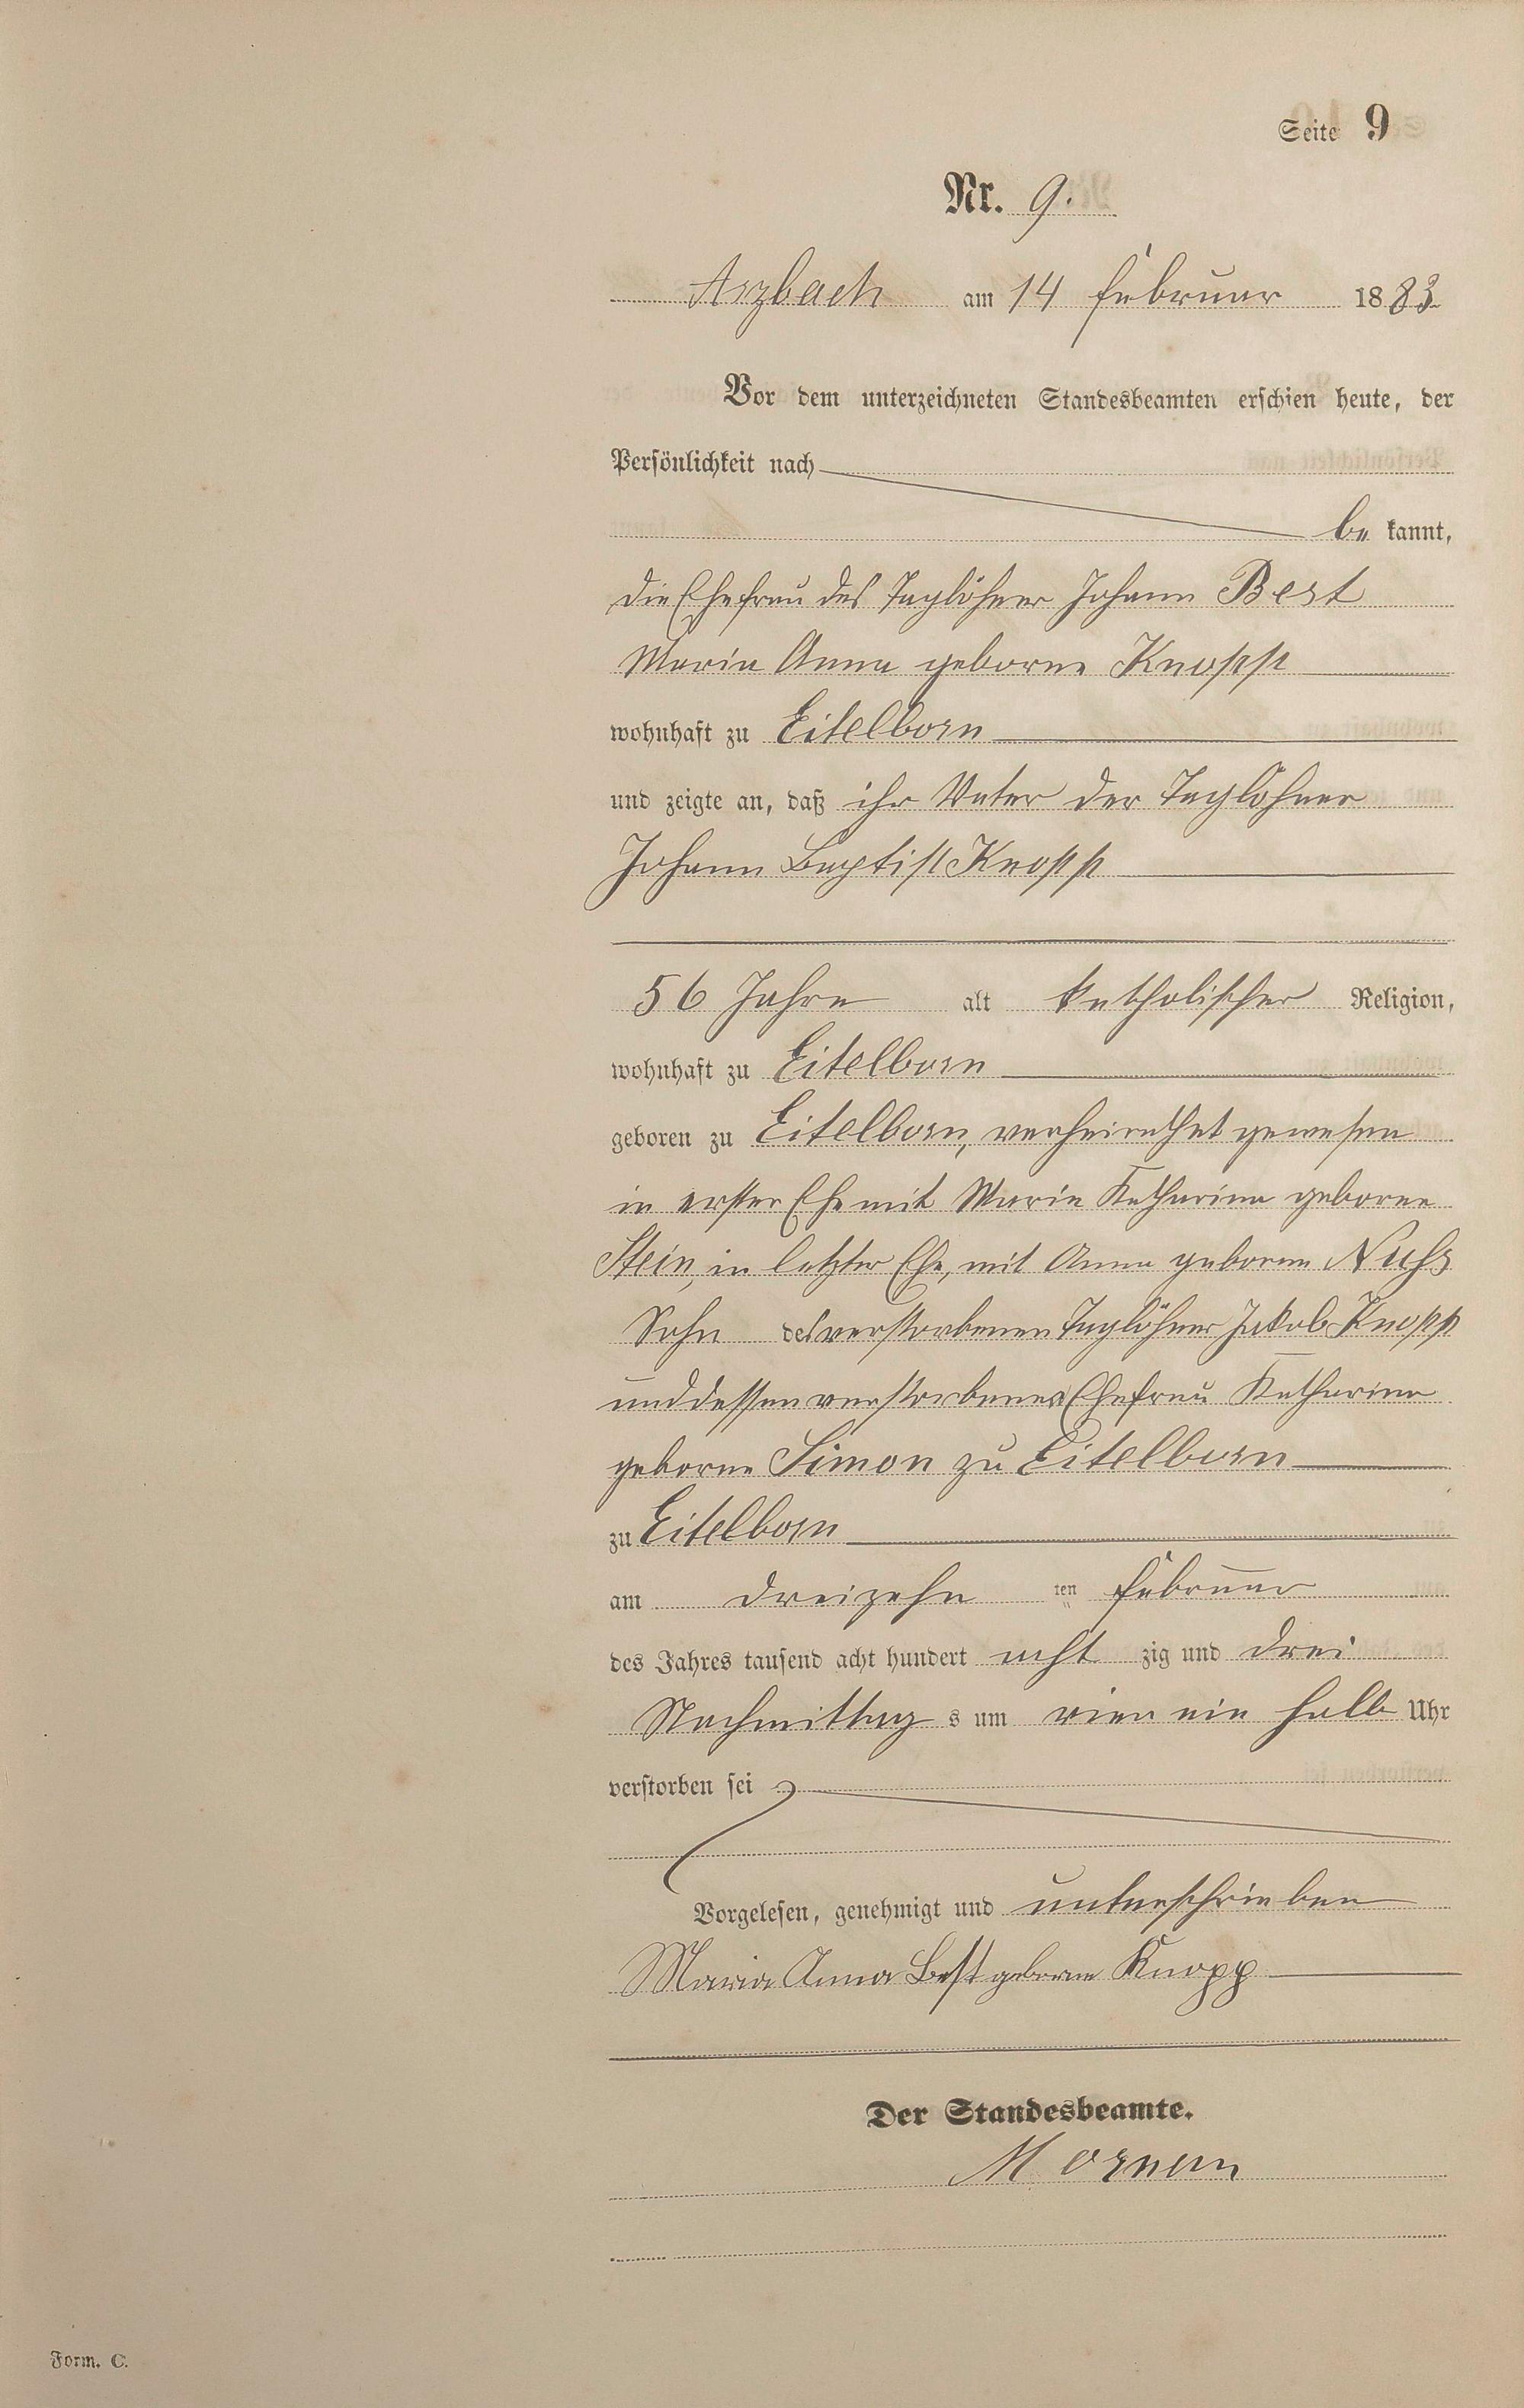 Seite 9
Nr. 9.
Arzbach am 14 Februar 1883
Vor dem unterzeichneten Standesbeamten erschien heute, der
Persönlichkeit nach
be kannt,
die Ehefrau des Taglöhner Johann Best
Maria Anna geborne Knopp
wohnhaft zu Eitelborn
und zeigte an, daß ihr Vater der Taglöhner
Johann Baptist Knopp
56 Jahre alt katholischer Religion,
wohnhaft zu Eitelborn
geboren zu Eitelborn, verheirathet gewesen
in erster Ehe mit Maria Katharina geborne
Stein, in letzter Ehe, mit Anna geborene
Sohn des verstorbenen Taglöhner Jakob Knopp
und dessen verstorbener Ehefrau Katharina
geborne Simon zu Eitelborn
zu Eitelborn
am dreizehn ten Februar
des Jahres tausend acht hundert acht zig und drei
Nachmittag s um vier ein halb Uhr
verstorben sei
Vorgelesen, genehmigt und unterschrieben
Maria Anna Best geborne Knopp
Der Standesbeamte.
Form. C.